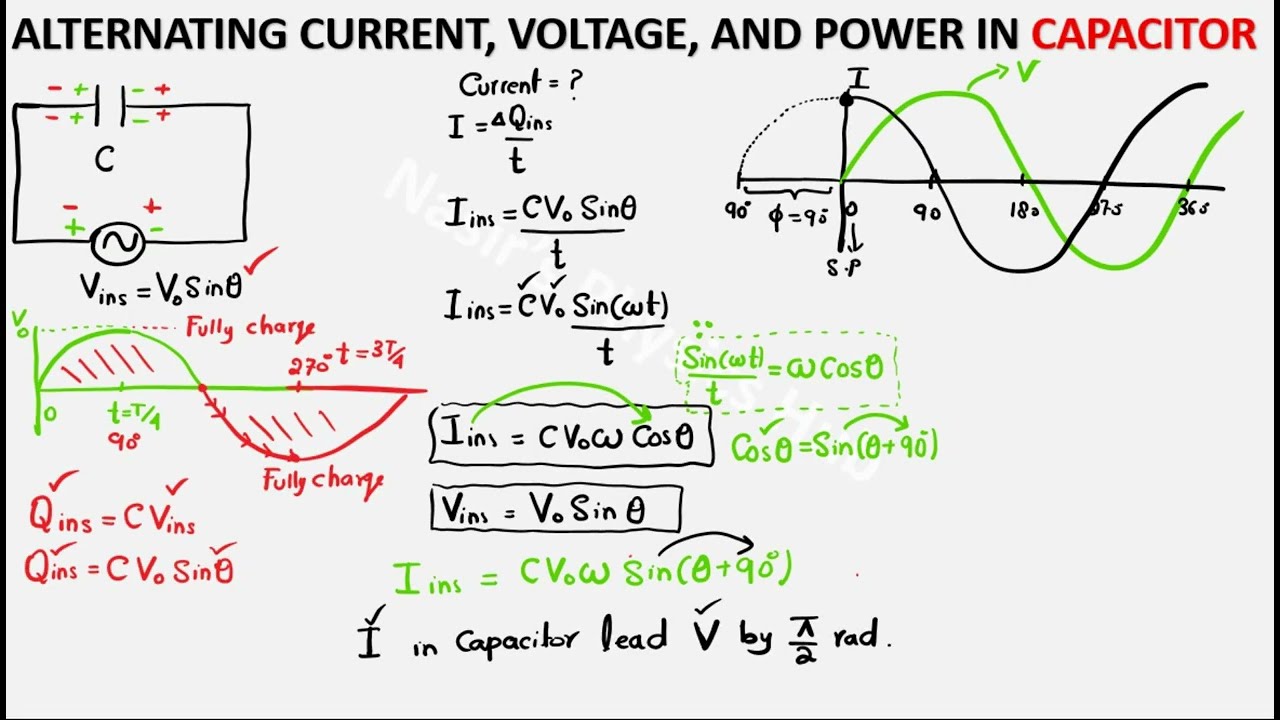 ALTERNATING CURRENT, VOLTAGE, AND POWER IN CAPACITOR
- + - +
- + - +
C
- +
+ -
Vins = V₀Sinθ
V₀
Fully charge
270° t = 3T/4
0
t=T/4
90°
Fully charge
Qins = CVins
Qins = CV₀Sinθ
Current = ?
I = ΔQins
t
Iins = CV₀ Sinθ
t
Iins = CV₀ Sin(ωt)
t
∵
Sin(ωt) = ωCosθ
t
Iins = CV₀ω Cosθ
Cosθ = Sin(θ+90°)
Vins = V₀ Sin θ
Iins = CV₀ω Sin(θ+90°)
I in capacitor lead V by π/2 rad.
I
V
90° ϕ=90° 0 90 180 36
S.P
Nasir's Physics Hub